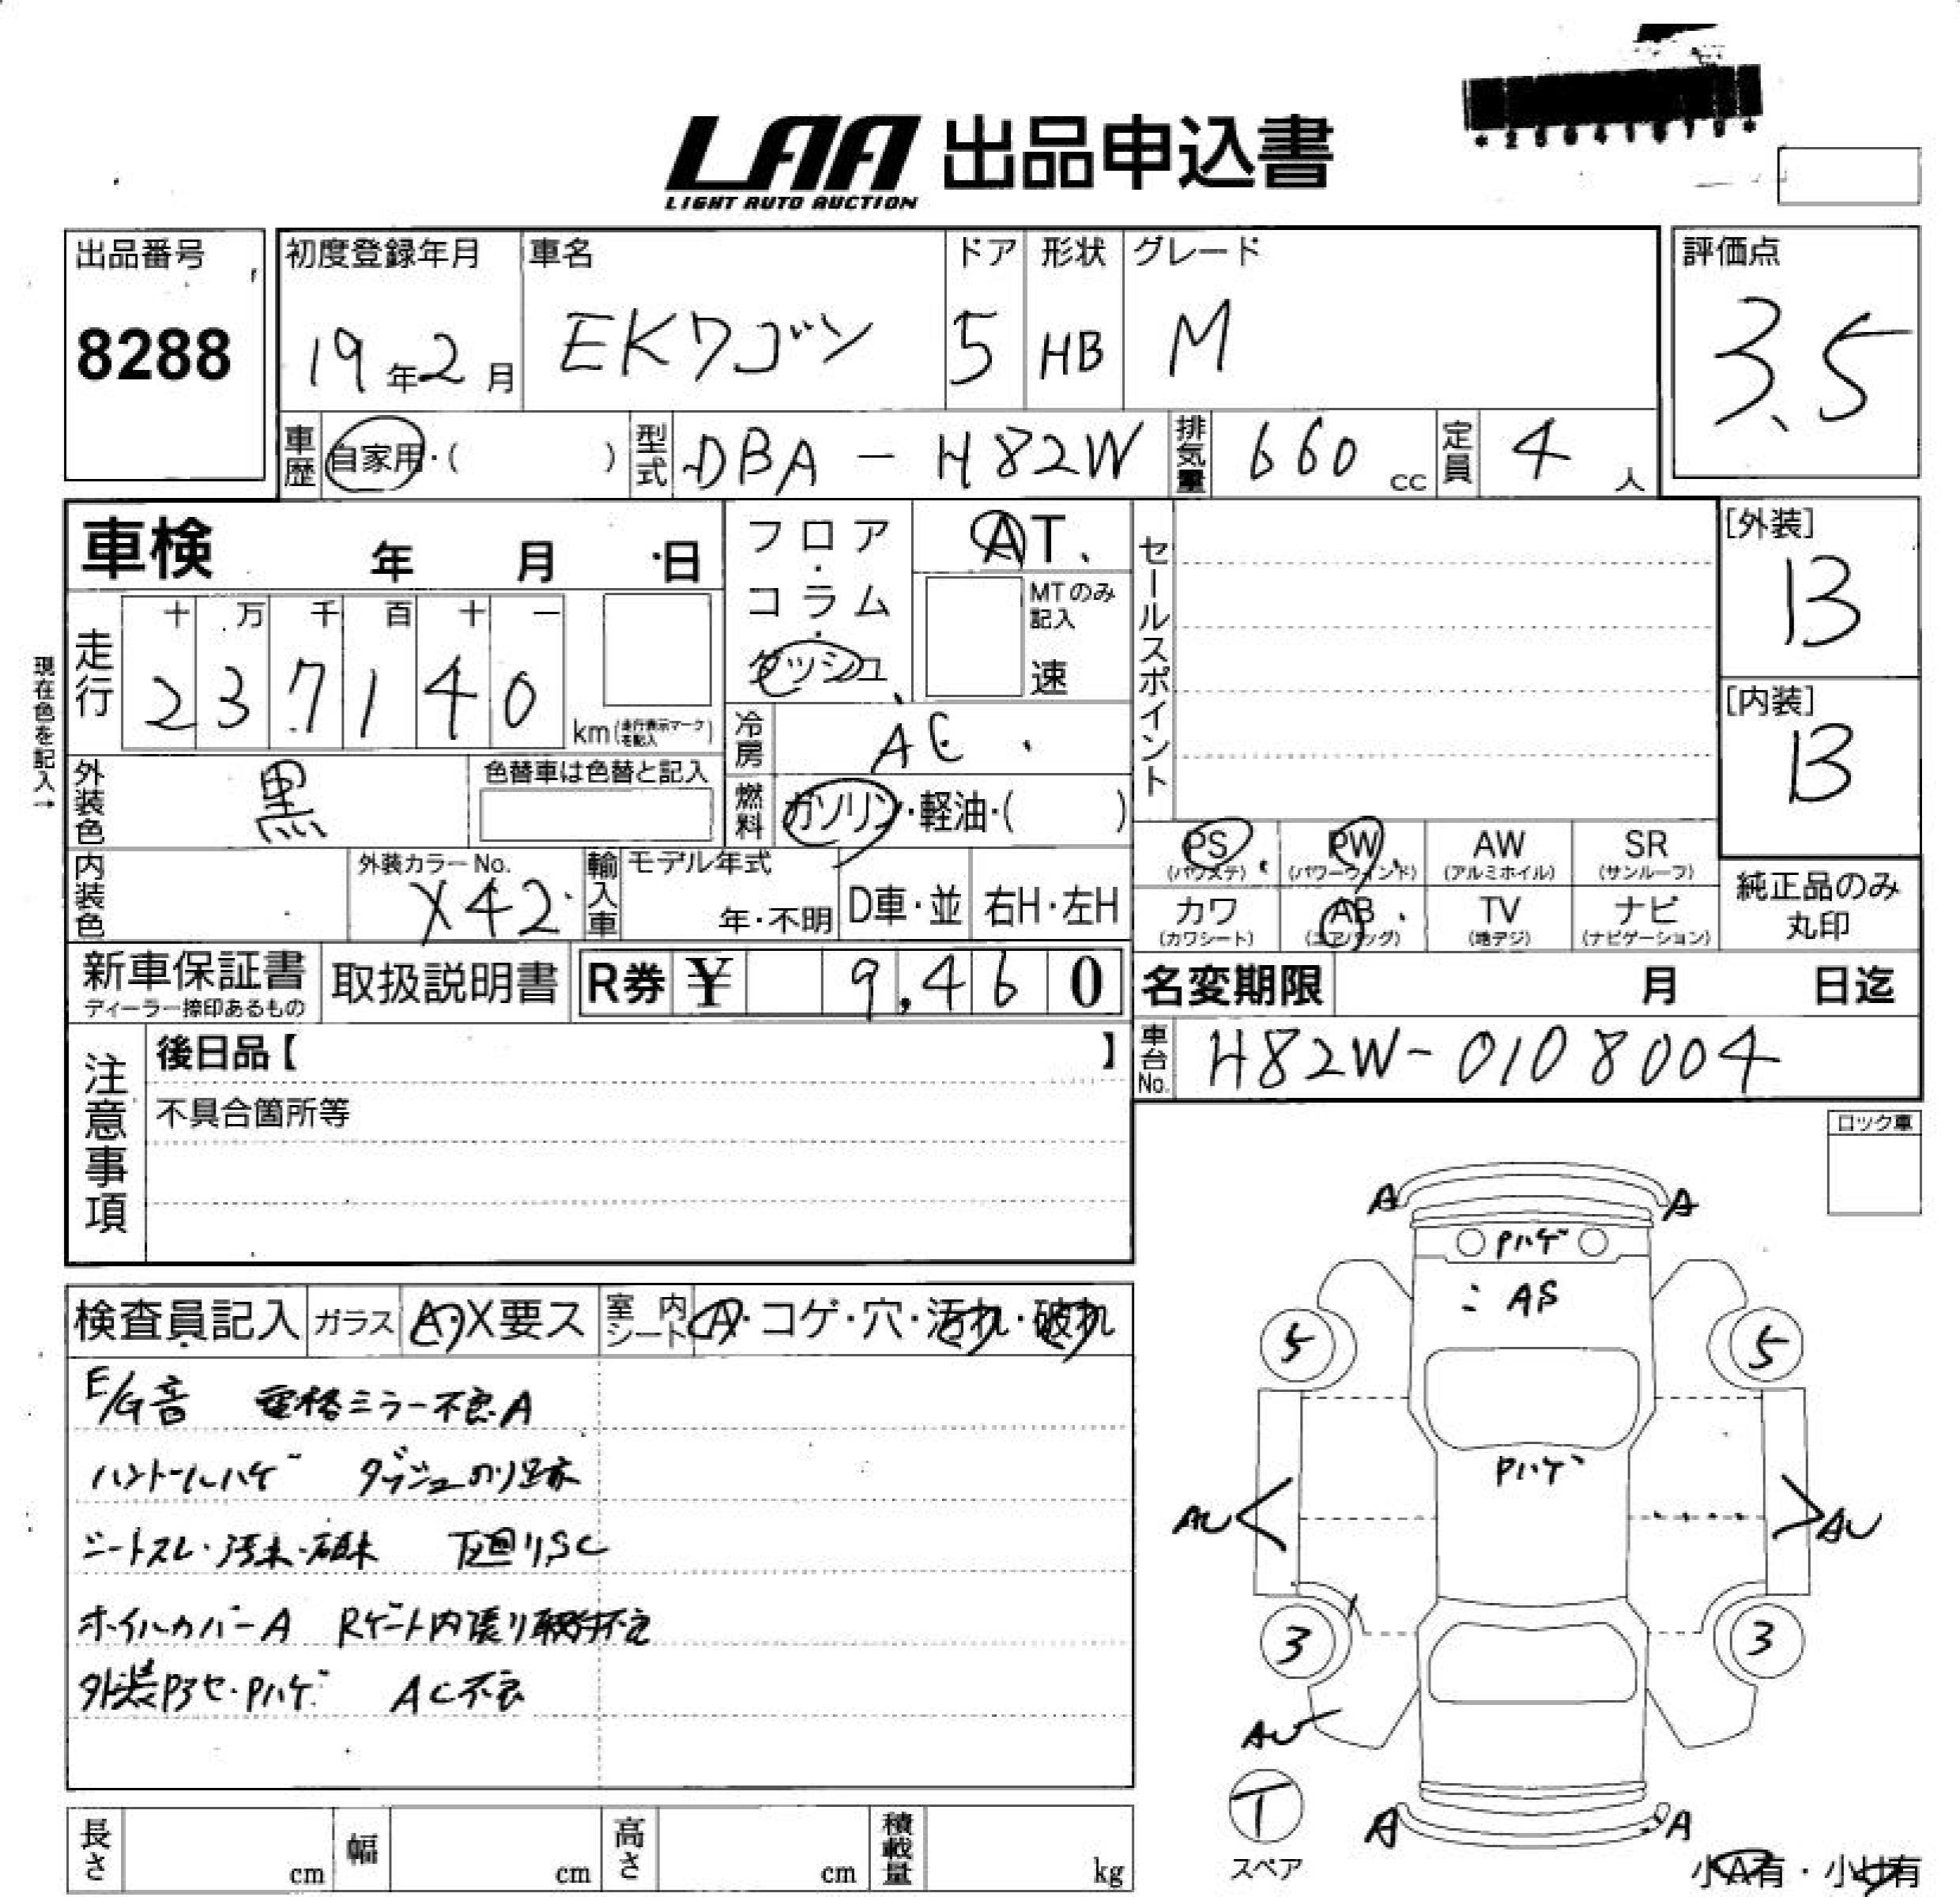 LAA 出品申込書
LIGHT AUTO AUCTION
出品番号
8288
初度登録年月
19年2月
車名
EKワゴン
ドア
5
形状
HB
グレード
M
評価点
3.5
車歴
自家用・( )
型式
DBA - H82W
排気量
660 cc
定員
4 人
車検 年 月 日
フロア・コラム・ダッシュ
AT
MTのみ記入
速
セールスポイント
[外装]
B
[内装]
B
現在色を記入→
走行
十 万 千 百 十 一
2 3 7 1 4 0
km(走行表示マークを記入)
冷房
AC
外装色
黒
色替車は色替と記入
燃料
ガソリン・軽油・( )
内装色
外装カラーNo.
X42
輸入車
モデル年式
年・不明
D車・並
右H・左H
PS
(パワステ)
PW
(パワーウィンド)
AW
(アルミホイル)
SR
(サンルーフ)
カワ
(カワシート)
AB
(エアバッグ)
TV
(地デジ)
ナビ
(ナビゲーション)
純正品のみ
丸印
新車保証書
ディーラー捺印あるもの
取扱説明書
R券 ¥ 9,460
名変期限 月 日迄
車台No.
H82W-0108004
注意事項
後日品【 】
不具合箇所等
ロック車
検査員記入
ガラス
A・X要ス
室内シート
A・コゲ・穴・汚れ・破れ
E/G音 電格ミラー不良A
ハンドルハゲ ダッシュのり跡
シートスレ・汚れ・破れ 下廻りSC
ホイルカバーA Rゲート内張り取付不良
外装Pアセ・Pハゲ AC不良
A A
Pハゲ
AS
5 5
Pハゲ
AU AU
3 3
AU
T
スペア
A A
小A有・小U有
長さ cm
幅 cm
高さ cm
積載量 kg